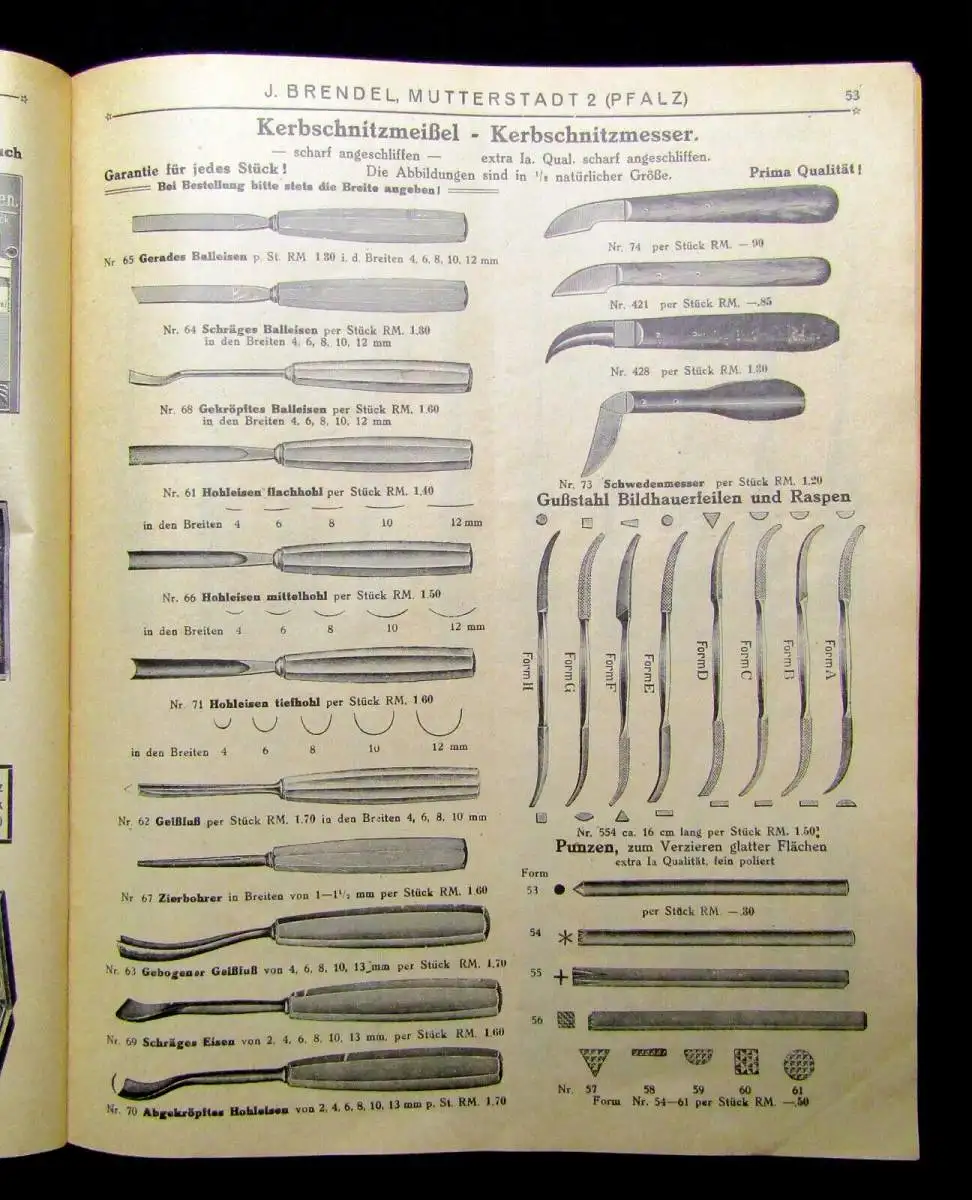 J. BRENDEL, MUTTERSTADT 2 (PFALZ)
53
Kerbschnitzmeißel - Kerbschnitzmesser.
— scharf angeschliffen —
extra Ia. Qual. scharf angeschliffen.
Garantie für jedes Stück!
Die Abbildungen sind in ½ natürlicher Größe.
Prima Qualität!
Bei Bestellung bitte stets die Breite angeben!
Nr 65 Gerades Balleisen p. St. RM 1.30 i. d. Breiten 4, 6, 8, 10, 12 mm
Nr. 64 Schräges Balleisen per Stück RM. 1.30
in den Breiten 4, 6, 8, 10, 12 mm
Nr. 68 Gekröpftes Balleisen per Stück RM. 1.60
in den Breiten 4, 6, 8, 10, 12 mm
Nr. 61 Hohleisen flachhohl per Stück RM. 1.40
in den Breiten 4 6 8 10 12 mm
Nr. 66 Hohleisen mittelhohl per Stück RM. 1.50
in den Breiten 4 6 8 10 12 mm
Nr. 71 Hohleisen tiefhohl per Stück RM. 1 60
in den Breiten 4 6 8 10 12 mm
Nr. 62 Geißfuß per Stück RM. 1.70 in den Breiten 4, 6, 8, 10 mm
Nr 67 Zierbohrer in Breiten von 1—1½ mm per Stück RM. 1.60
Nr. 63 Gebogener Geißfuß von 4, 6, 8, 10, 13 mm per Stück RM. 1.70
Nr. 69 Schräges Eisen von 2, 4, 6, 8, 10, 13 mm. per Stück RM. 1.60
Nr. 70 Abgekröpftes Hohleisen von 2, 4, 6, 8, 10, 13 mm p. St. RM. 1.70
Nr. 74 per Stück RM. —.90
Nr. 421 per Stück RM. —.85
Nr. 428 per Stück RM. 1.30
Nr. 73 Schwedenmesser per Stück RM. 1.20
Gußstahl Bildhauerfeilen und Raspen
Form H
Form G
Form F
Form E
Form D
Form C
Form B
Form A
Nr. 554 ca. 16 cm lang per Stück RM. 1.50
Punzen, zum Verzieren glatter Flächen
extra Ia Qualität, fein poliert
Form
53
per Stück RM. —.30
54
55
56
Nr. 57 58 59 60 61
Form Nr. 54—61 per Stück RM. —.50